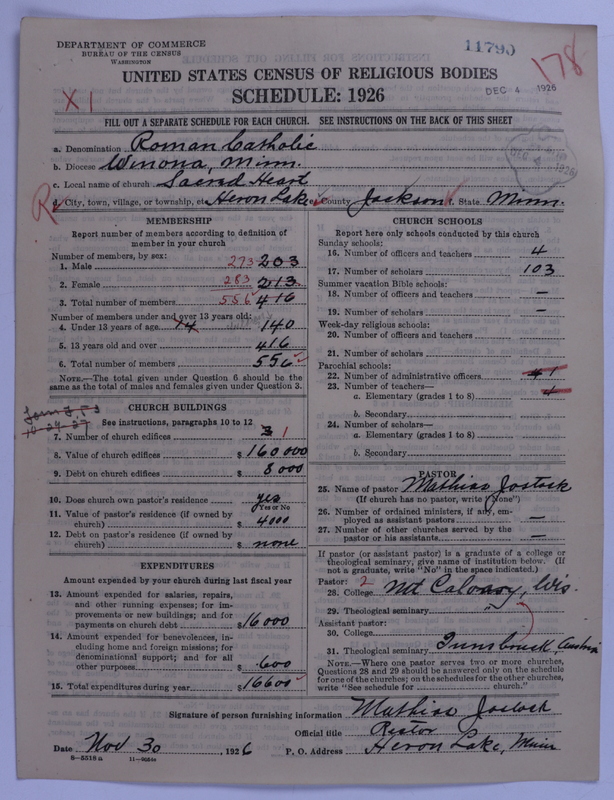 DEPARTMENT OF COMMERCE
BUREAU OF THE CENSUS
WASHINGTON
11790
178
DEC 4 1926
UNITED STATES CENSUS OF RELIGIOUS BODIES
X 1
SCHEDULE: 1926
FILL OUT A SEPARATE SCHEDULE FOR EACH CHURCH. SEE INSTRUCTIONS ON THE BACK OF THIS SHEET
a. Denomination Roman Catholic
b. Diocese Winona, Minn.
DEC 4 1926
c. Local name of church Sacred Heart
R
d. City, town, village, or township, etc. Heron Lake e. County Jackson f. State Minn.
MEMBERSHIP
Report number of members according to definition of
member in your church
Number of members, by sex:
1. Male 273 203
2. Female 283 213
3. Total number of members 556 416
Number of members under and over 13 years old:
4. Under 13 years of age 14 140
5. 13 years old and over 416
6. Total number of members 556
NOTE.—The total given under Question 6 should be the
same as the total of males and females given under Question 3.
10-24-27
CHURCH BUILDINGS
See instructions, paragraphs 10 to 12
7. Number of church edifices 3 1
8. Value of church edifices $ 160 000
9. Debt on church edifices $ 8 000
10. Does church own pastor's residence yes
Yes or No
11. Value of pastor's residence (if owned by
church) $ 4000
12. Debt on pastor's residence (if owned by
church) $ none
EXPENDITURES
Amount expended by your church during last fiscal year
13. Amount expended for salaries, repairs,
and other running expenses; for im-
provements or new buildings; and for
payments on church debt $ 16 000
14. Amount expended for benevolences, in-
cluding home and foreign missions; for
denominational support; and for all
other purposes $ 600
15. Total expenditures during year $ 16600
CHURCH SCHOOLS
Report here only schools conducted by this church
Sunday schools:
16. Number of officers and teachers 4
17. Number of scholars 103
Summer vacation Bible schools:
18. Number of officers and teachers —
19. Number of scholars —
Week-day religious schools:
20. Number of officers and teachers
21. Number of scholars
Parochial schools:
22. Number of administrative officers
23. Number of teachers—
a. Elementary (grades 1 to 8)
b. Secondary
24. Number of scholars—
a. Elementary (grades 1 to 8)
b. Secondary
PASTOR
25. Name of pastor Mathias Jostock
(If church has no pastor, write "None")
26. Number of ordained ministers, if any, em-
ployed as assistant pastors —
27. Number of other churches served by the
pastor or his assistants —
If pastor (or assistant pastor) is a graduate of a college or
theological seminary, give name of institution below. (If
not a graduate, write "No" in the space indicated.)
Pastor: 2
28. College Mt Calvary, Wis.
29. Theological seminary
Assistant pastor:
30. College
31. Theological seminary Innsbruck, Austria
NOTE.—Where one pastor serves two or more churches,
Questions 28 and 29 should be answered only on the schedule
for one of the churches; on the schedules for the other churches,
write "See schedule for church."
Signature of person furnishing information Mathias Jostock
Official title Rector
Date Nov 30, 1926 P. O. Address Heron Lake, Minn
8—5518 a 11—9054a